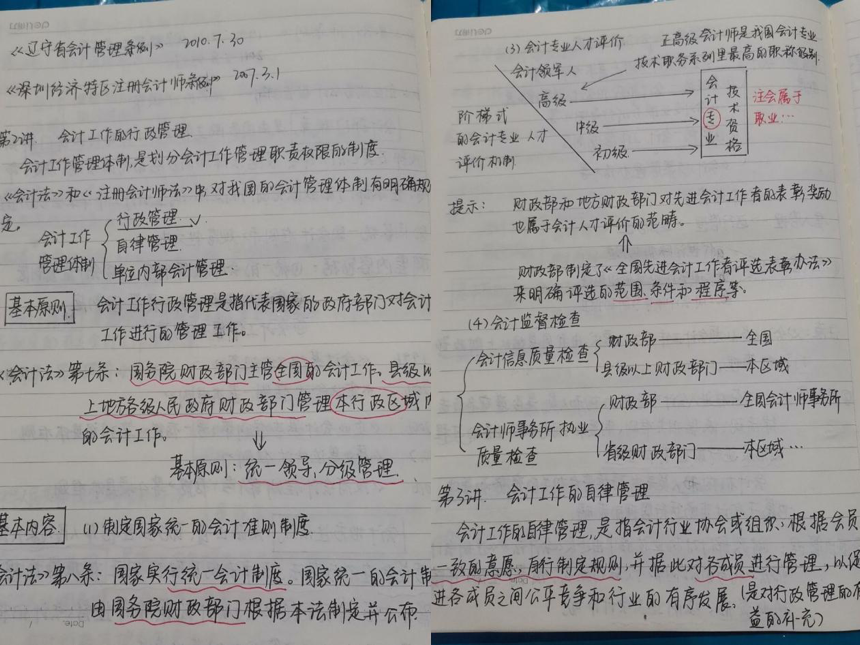 《辽宁省会计管理条例》 2010.7.30
《深圳经济特区注册会计师条例》 2007.3.1
第2讲 会计工作的行政管理
会计工作管理体制,是划分会计工作管理职责权限的制度
《会计法》和《注册会计师法》中,对我国的会计管理体制有明确规
定。
会计工作
管理体制
行政管理
自律管理
单位内部会计管理
基本原则 会计工作行政管理是指代表国家的政府部门对会计
工作进行的管理工作。
《会计法》第七条:国务院财政部门主管全国的会计工作。县级以
上地方各级人民政府财政部门管理本行政区域内
的会计工作。
基本原则:统一领导,分级管理
基本内容 (1)制定国家统一的会计准则制度
会计法》第八条:国家实行统一会计制度。国家统一的会计制
由国务院财政部门根据本法制定并公布.
(3)会计专业人才评价
正高级会计师是我国会计专业
技术职务系列里最高的职称级别.
会计领军人
阶梯式
的会计专业人才
评价机制
高级
中级
初级
会计专业
技术资格
注会属于
职业…
提示: 财政部和地方财政部门对先进会计工作者的表彰奖励
也属于会计人才评价的范畴。
财政部制定了《全国先进会计工作者评选表彰办法》
来明确评选的范围、条件和程序等.
(4)会计监督检查
会计信息质量检查
财政部 全国
县级以上财政部门 本区域
会计师事务所执业
质量检查
财政部 全国会计师事务所
省级财政部门 本区域…
第3讲. 会计工作的自律管理
会计工作的自律管理,是指会计行业协会或组织,根据会员
一致的意愿,自行制定规则,并据此对各成员进行管理,以促
进各成员之间公平竞争和行业的有序发展.(是对行政管理的有
益的补充)